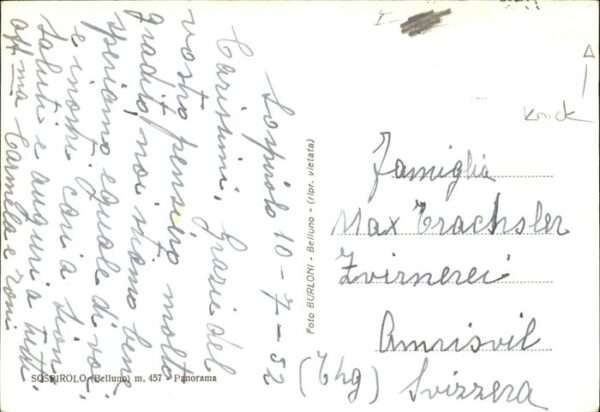 Sospirolo 10-7-52
Carissimi, Grazie del
vostro pensiero molto
gradito, noi stiamo bene
speriamo eguale di voi
e i nostri cari a Sion
saluti e auguri a tutti
aff ma Carmela e
SOSPIROLO (Belluno) m. 457 - Panorama
Foto BURLONI - Belluno - (ripr. vietata)
I
Knick
Famiglia
Max Trachsler
Zvirnerei
Amrisvil
(Thg) Svizzera